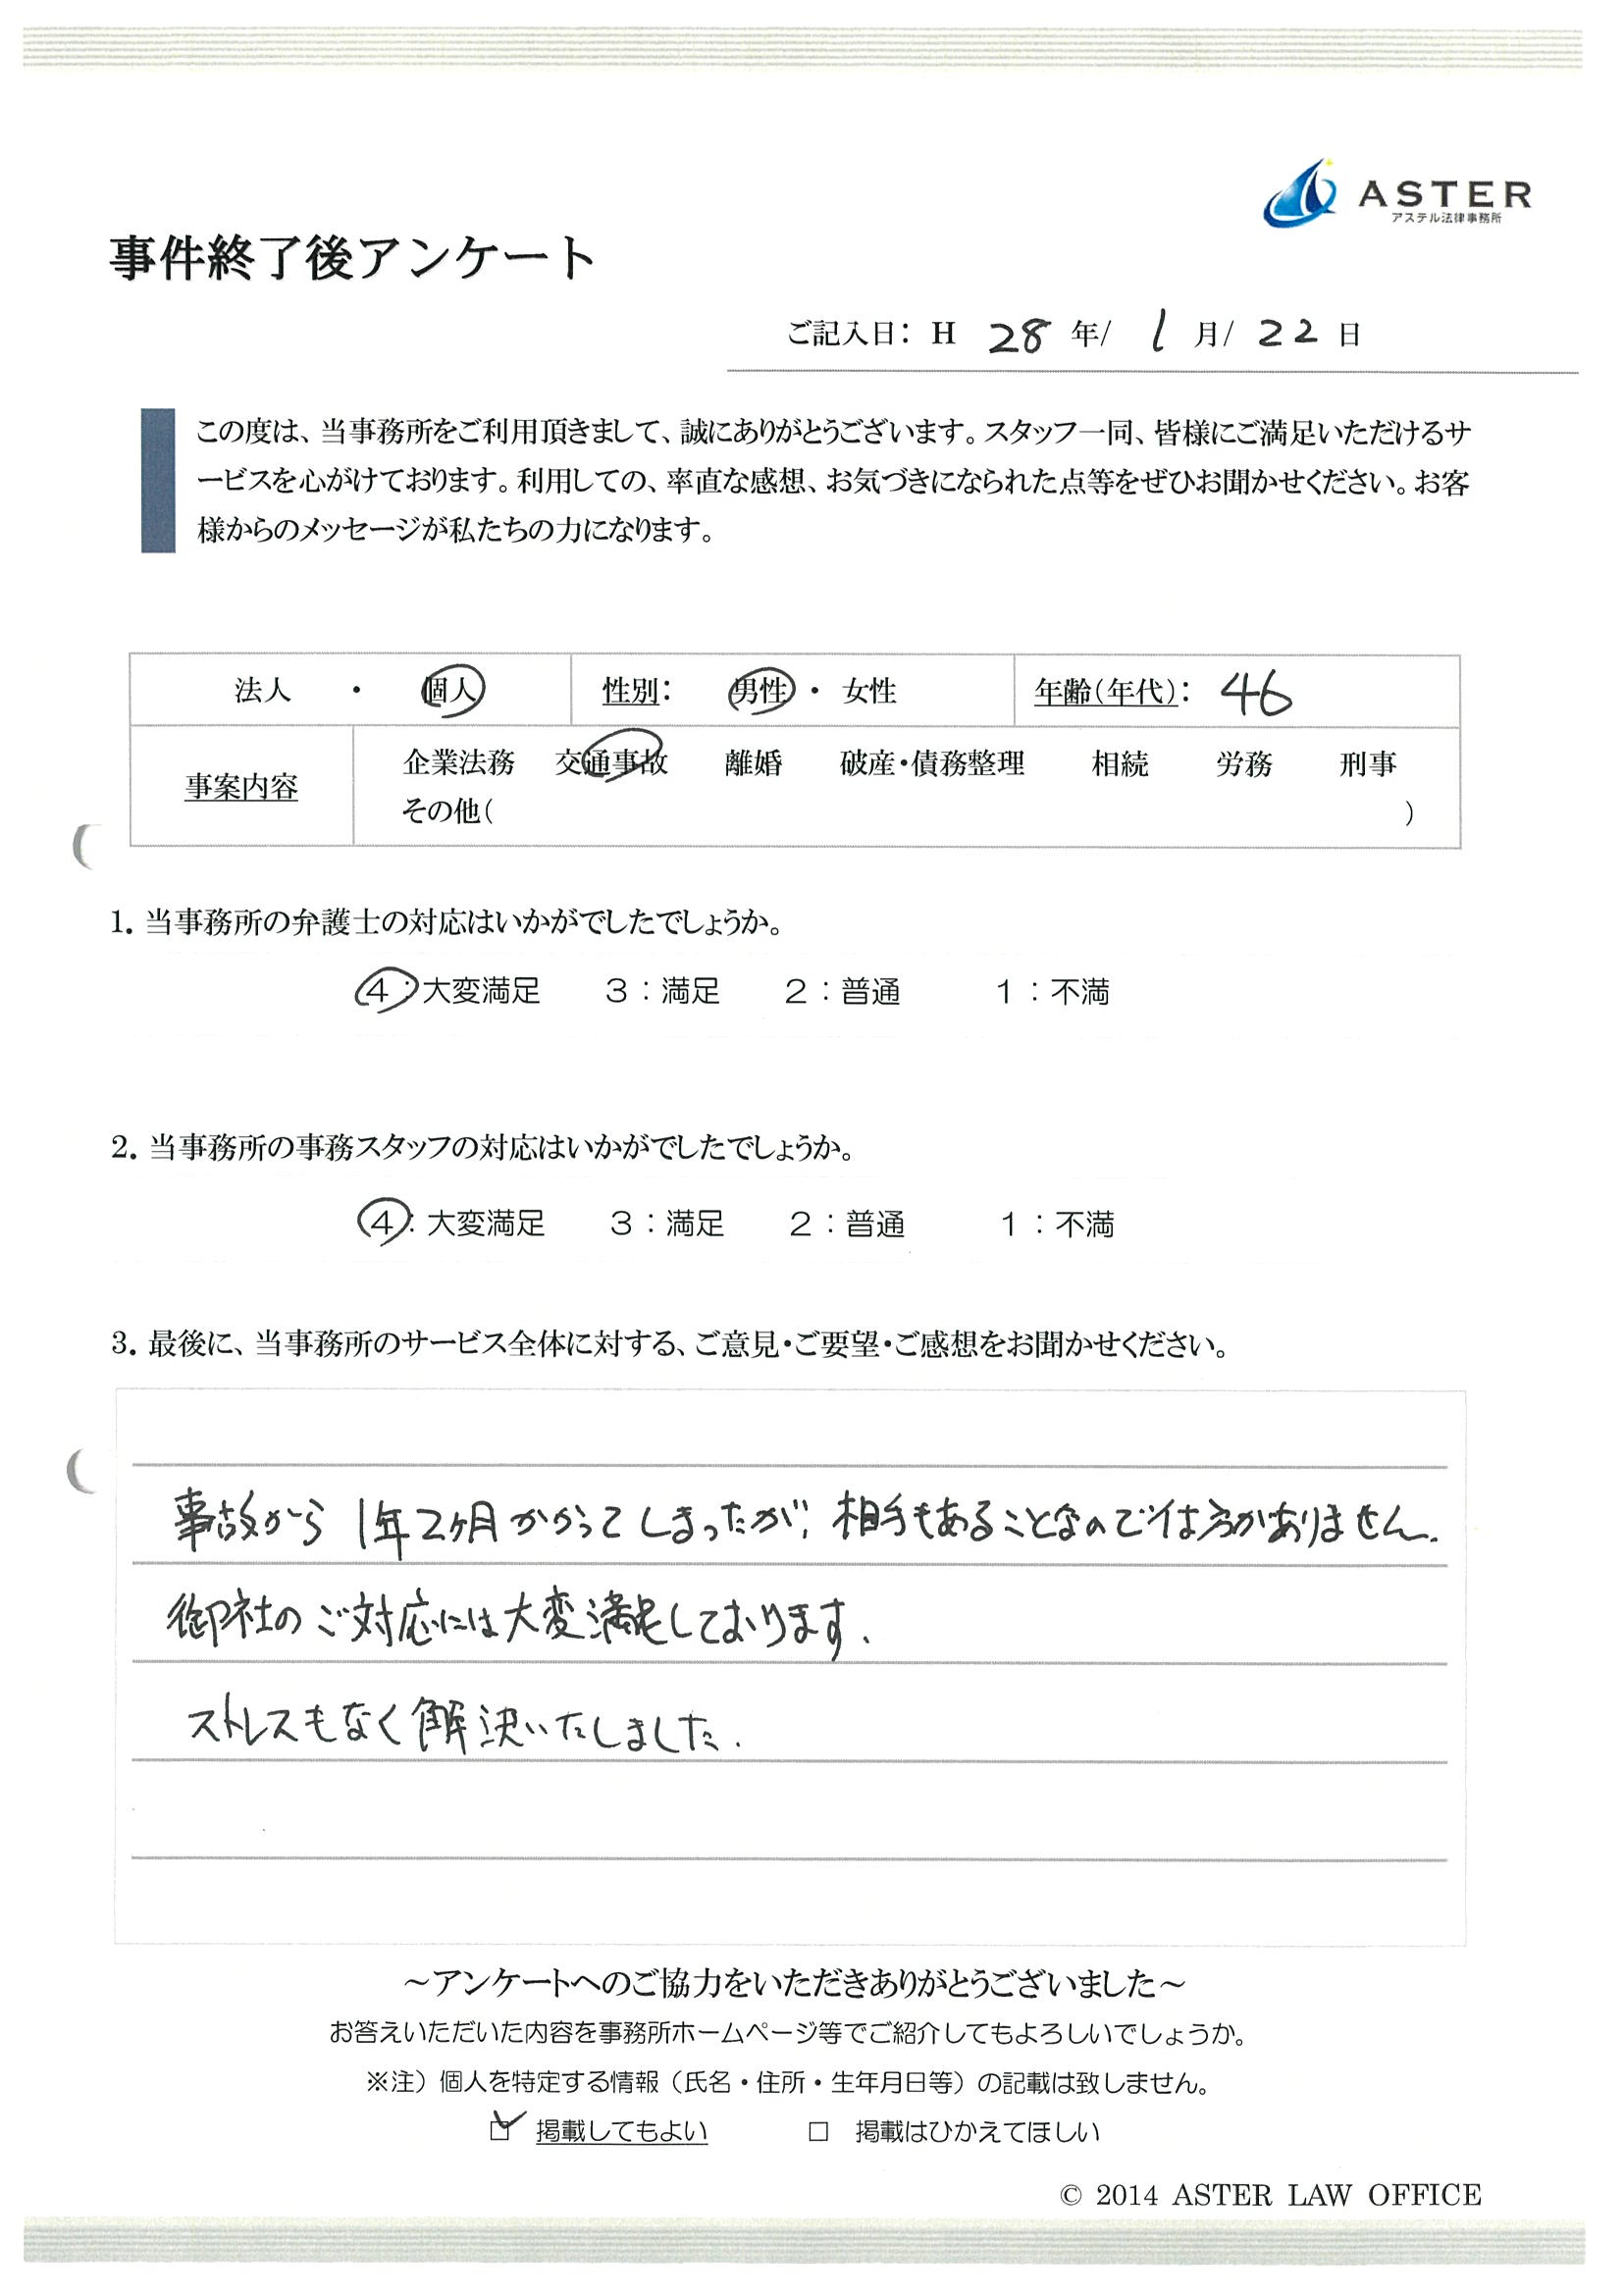 ASTER
アステル法律事務所
事件終了後アンケート
ご記入日： H 28 年/ 1 月/ 22 日
この度は、当事務所をご利用頂きまして、誠にありがとうございます。スタッフ一同、皆様にご満足いただけるサ
ービスを心がけております。利用しての、率直な感想、お気づきになられた点等をぜひお聞かせください。お客
様からのメッセージが私たちの力になります。
法人 ・ 個人 性別： 男性 ・ 女性 年齢（年代）： 46
事案内容 企業法務 交通事故 離婚 破産・債務整理 相続 労務 刑事
その他（ ）
1. 当事務所の弁護士の対応はいかがでしたでしょうか。
4：大変満足 3：満足 2：普通 1：不満
2. 当事務所の事務スタッフの対応はいかがでしたでしょうか。
4：大変満足 3：満足 2：普通 1：不満
3. 最後に、当事務所のサービス全体に対する、ご意見・ご要望・ご感想をお聞かせください。
事故から1年2ヶ月かかってしまったが、相手もあることなので仕方がありません.
御社のご対応には大変満足しております.
ストレスもなく解決いたしました.
～アンケートへのご協力をいただきありがとうございました～
お答えいただいた内容を事務所ホームページ等でご紹介してもよろしいでしょうか。
※注）個人を特定する情報（氏名・住所・生年月日等）の記載は致しません。
☑ 掲載してもよい □ 掲載はひかえてほしい
© 2014 ASTER LAW OFFICE